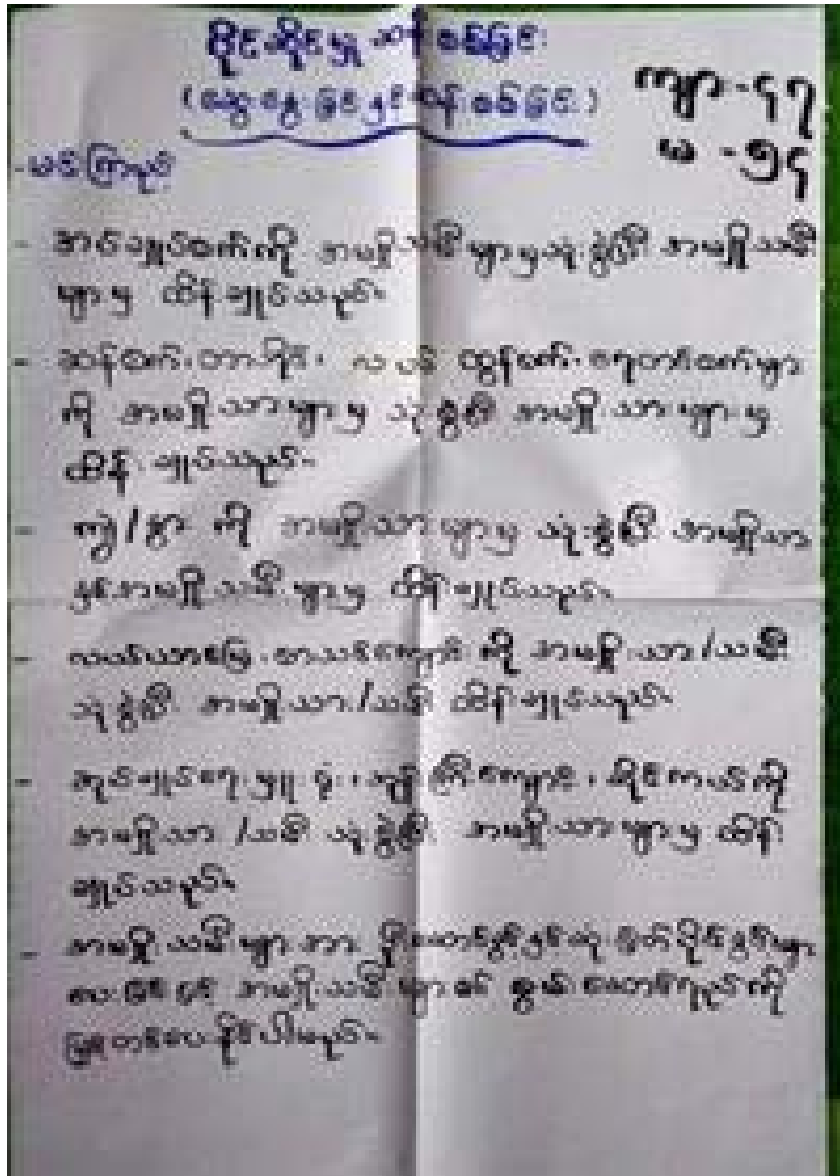 ပိုင်ဆိုင်မှု ဆန်းစစ်ခြင်း
(ဆွေးနွေးခြင်းနှင့်ဆန်းစစ်ခြင်း)
ကျား - ၄၇
မ - ၅၄
- အပ်ချုပ်စက်ကို အမျိုးသမီးများမှသုံးစွဲပြီး အမျိုးသမီး
များမှ ထိန်းချုပ်သည်။
- ဆန်စက်၊ လယ်ထွန်စက်၊ ရေတင်စက်များ
ကို အမျိုးသားများမှ သုံးစွဲပြီး အမျိုးသားများမှ
ထိန်းချုပ်သည်။
- ကျွဲ/နွား ကို အမျိုးသားများမှ သုံးစွဲပြီး အမျိုးသား
နှင့်အမျိုးသမီးများမှ ထိန်းချုပ်သည်။
- လယ်ယာမြေ၊ စာသင်ကျောင်း ကို အမျိုးသား/သမီး
သုံးစွဲပြီး အမျိုးသား/သမီး ထိန်းချုပ်သည်။
- အုပ်ချုပ်ရေးမှူးရုံး၊ ဘုန်းကြီးကျောင်း၊ ဆိုင်ကယ်ကို
အမျိုးသား/သမီး သုံးစွဲပြီး အမျိုးသားများမှ ထိန်း
ချုပ်သည်။
- အမျိုးသမီးများအား ပိုင်ခွင့်များ
ပေးခြင်းဖြင့် အမျိုးသမီးများ၏ စွမ်းဆောင်ရည်ကို
မြှင့်တင်ပေးနိုင်ပါမည်။